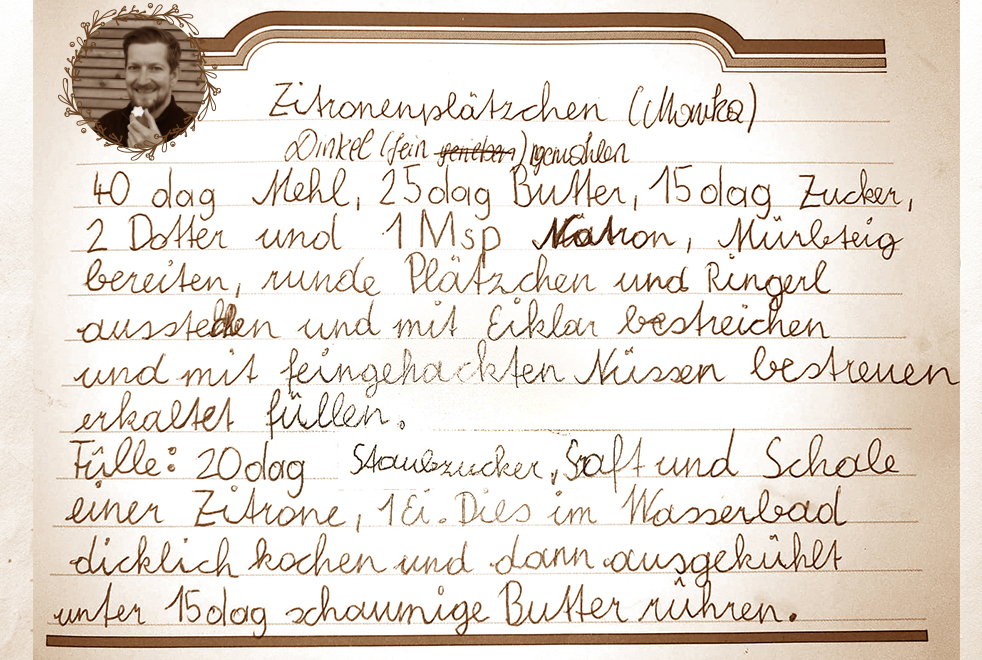 Zitronenplätzchen (Monika)
Dinkel (fein gerieben) gemahlen
40 dag Mehl, 25 dag Butter, 15 dag Zucker,
2 Dotter und 1 Msp Natron, Mürbteig
bereiten, runde Plätzchen und Ringerl
ausstechen und mit Eiklar bestreichen
und mit feingehackten Nüssen bestreuen
erkaltet füllen.
Fülle: 20 dag Staubzucker, Saft und Schale
einer Zitrone, 1 Ei. Dies im Wasserbad
dicklich kochen und dann ausgekühlt
unter 15 dag schaumige Butter rühren.